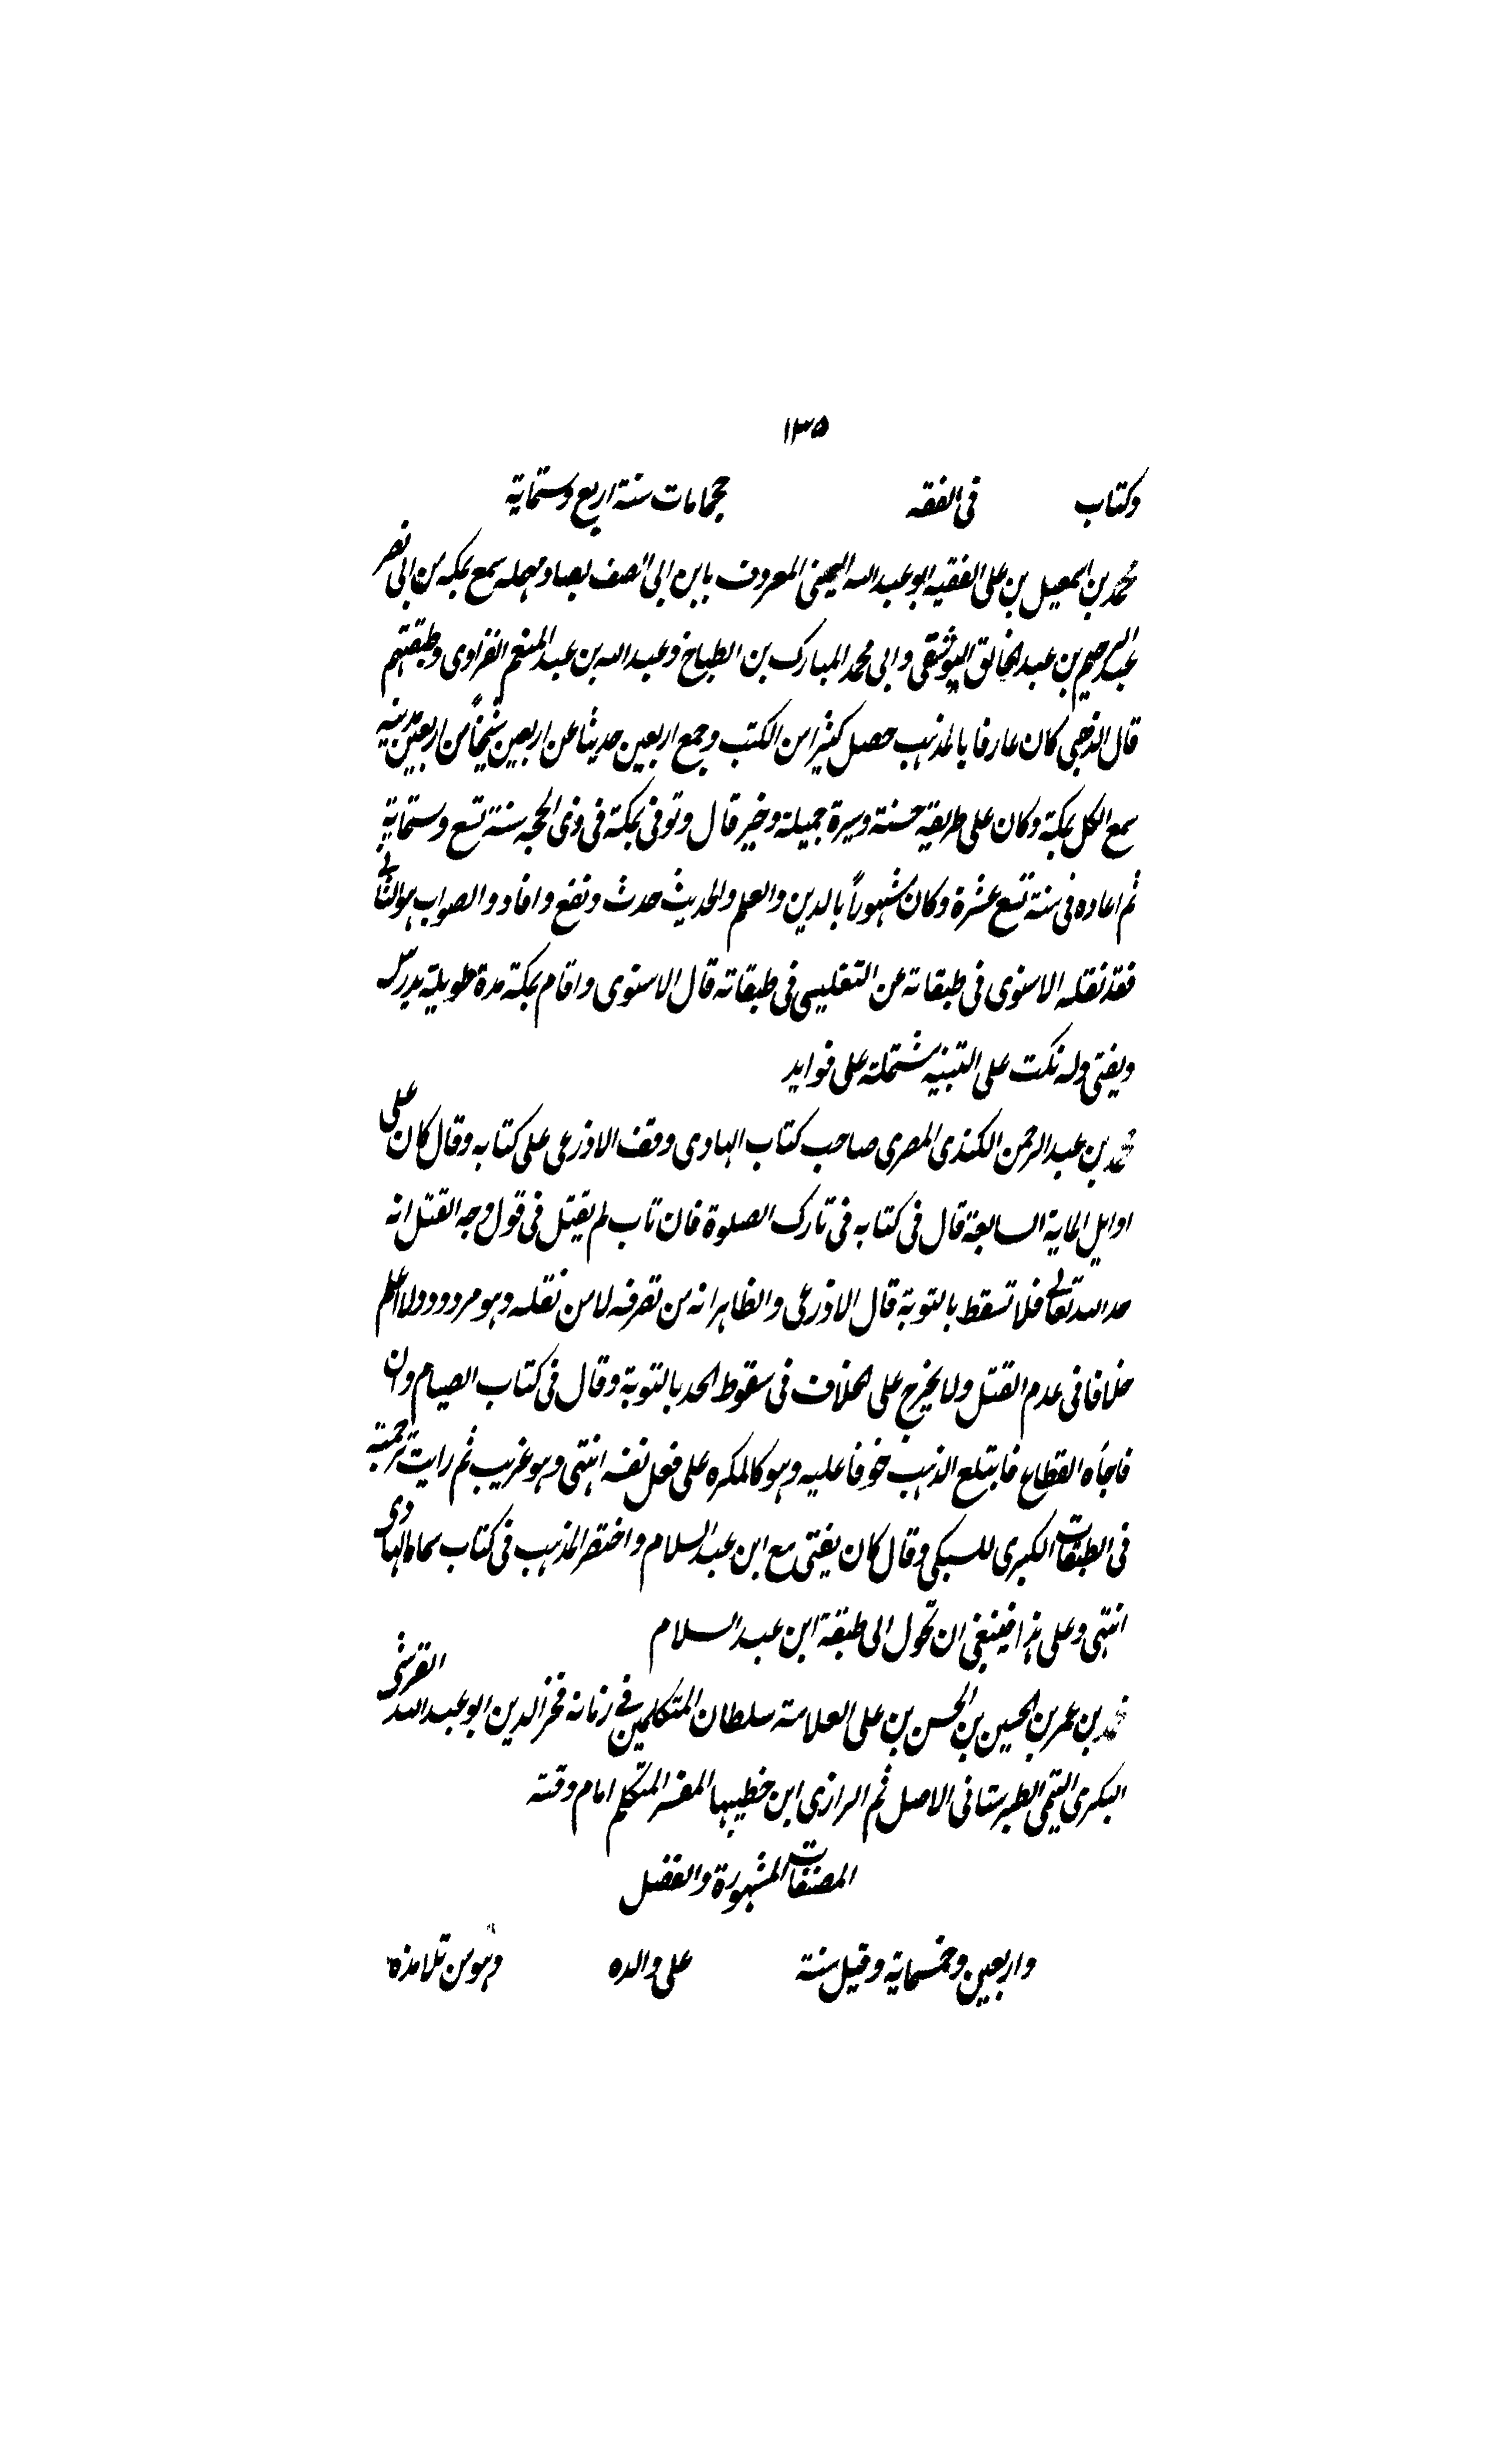 ١٣٥
وكتاب في الفقه مات سنة اربع وستماية
محمد بن اسمعيل بن على الفقيه ابو عبد الله اليمنى المعروف بابن ابى الصف بصاد مهملة سمع بمكة من ابى نصر
عبد الرحيم بن عبد الخالق اليوسفى وابى محمد المبارك بن الطباخ وعبد الله بن عبد المنعم الفراوى وطبقتهم
قال الذهبى كان عارفا بالمذهب حصل كثيرا من الكتب وجمع اربعين حديثا عن اربعين شيخاً من اربعين مدينة
سمع الكل بمكة وكان على طريقة حسنة وسيرة جميلة وخير قال وتوفى بمكة فى ذى الحجه سنة تسع وستماية
ثم اعاده فى سنة تسع عشرة وكان مشهوراً بالدين والعلم والحديث حدث ونفع وافاد والصواب هو الثانى
فقد نقله الاسنوى فى طبقاته عن التفليسى فى طبقاته قال الاسنوى واقام بمكة مدة طويلة يدرس
ويفتى وله نكت على التنبيه مشتملة على فوايد
محمد بن عبد الرحمن الكندى المصرى صاحب كتاب الهادى وقف الاذرعى على كتابه وقال كان على
اوايل الماية السابعة قال فى كتابه فى تارك الصلوة فان تاب لم يقتل فى قول وجه القتل انه
حد الله تعالى فلا تسقط بالتوبة قال الاذرعى والظاهر انه من تصرفه لا من نقله وهو مردود ولا اعلم
خلافا فى عدم القتل ولا يخرج على الخلاف فى سقوط الحد بالتوبة وقال فى كتاب الصيام وان
فاجأه القطاع فابتلع الذهب خوفا عليه وهو كالمكره على فعل نفسه انتهى وهو غريب ثم رايت ترجمته
فى الطبقات الكبرى للسبكى وقال كان يفتى مع ابن عبد السلام واختصر المذهب فى كتاب سماه الهادى
انتهى وعلى هذا فينبغى ان تحول الى طبقة ابن عبد السلام
محمد بن عمر بن الحسين بن الحسن بن على العلامة سلطان المتكلمين فى زمانه فخر الدين ابو عبد الله القرشى
البكرى التيمى الطبرستانى الاصل ثم الرازى ابن خطيبها المفسر المتكلم امام وقته
المصنفات المشهورة والفضل
واربعين وخمسماية وقيل سنة على والده وهو من تلامذه